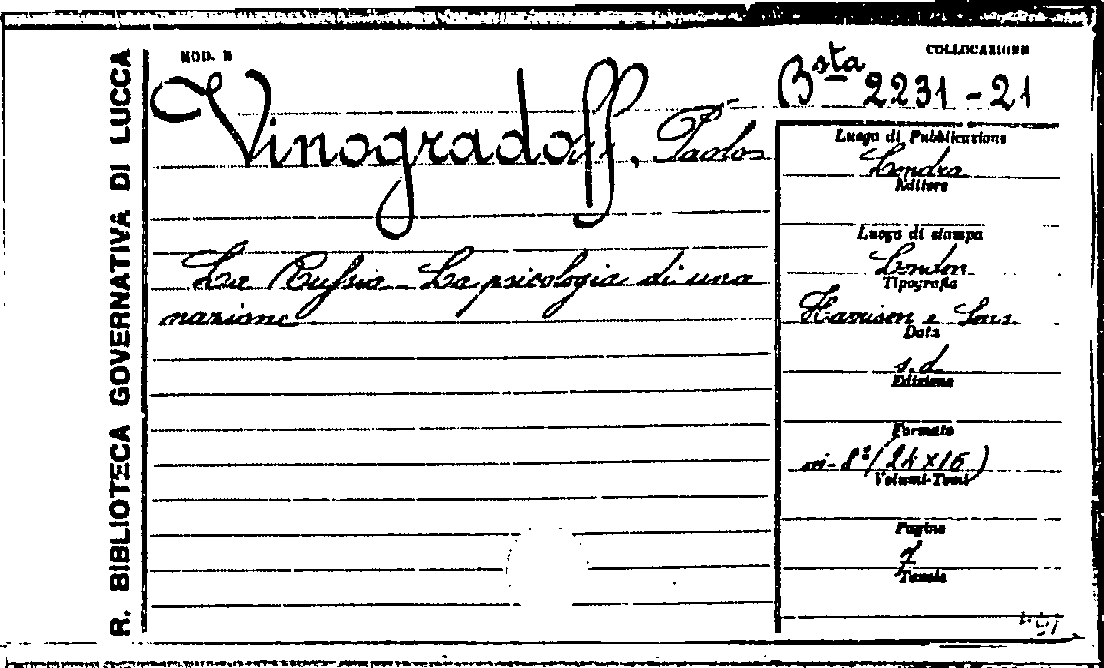 R. BIBLIOTECA GOVERNATIVA DI LUCCA
MOD. B
Vinogradoff, Paolo
La Russia - La psicologia di una
nazione
COLLOCAZIONE
Bsta 2231-21
Luogo di Pubblicazione
Londra
Editore
Luogo di stampa
London
Tipografia
Harrison e Sons
Data
s.d.
Edizione
Formato
in-8º (24×16)
Volumi-Tomi
Pagine
7
Tavole